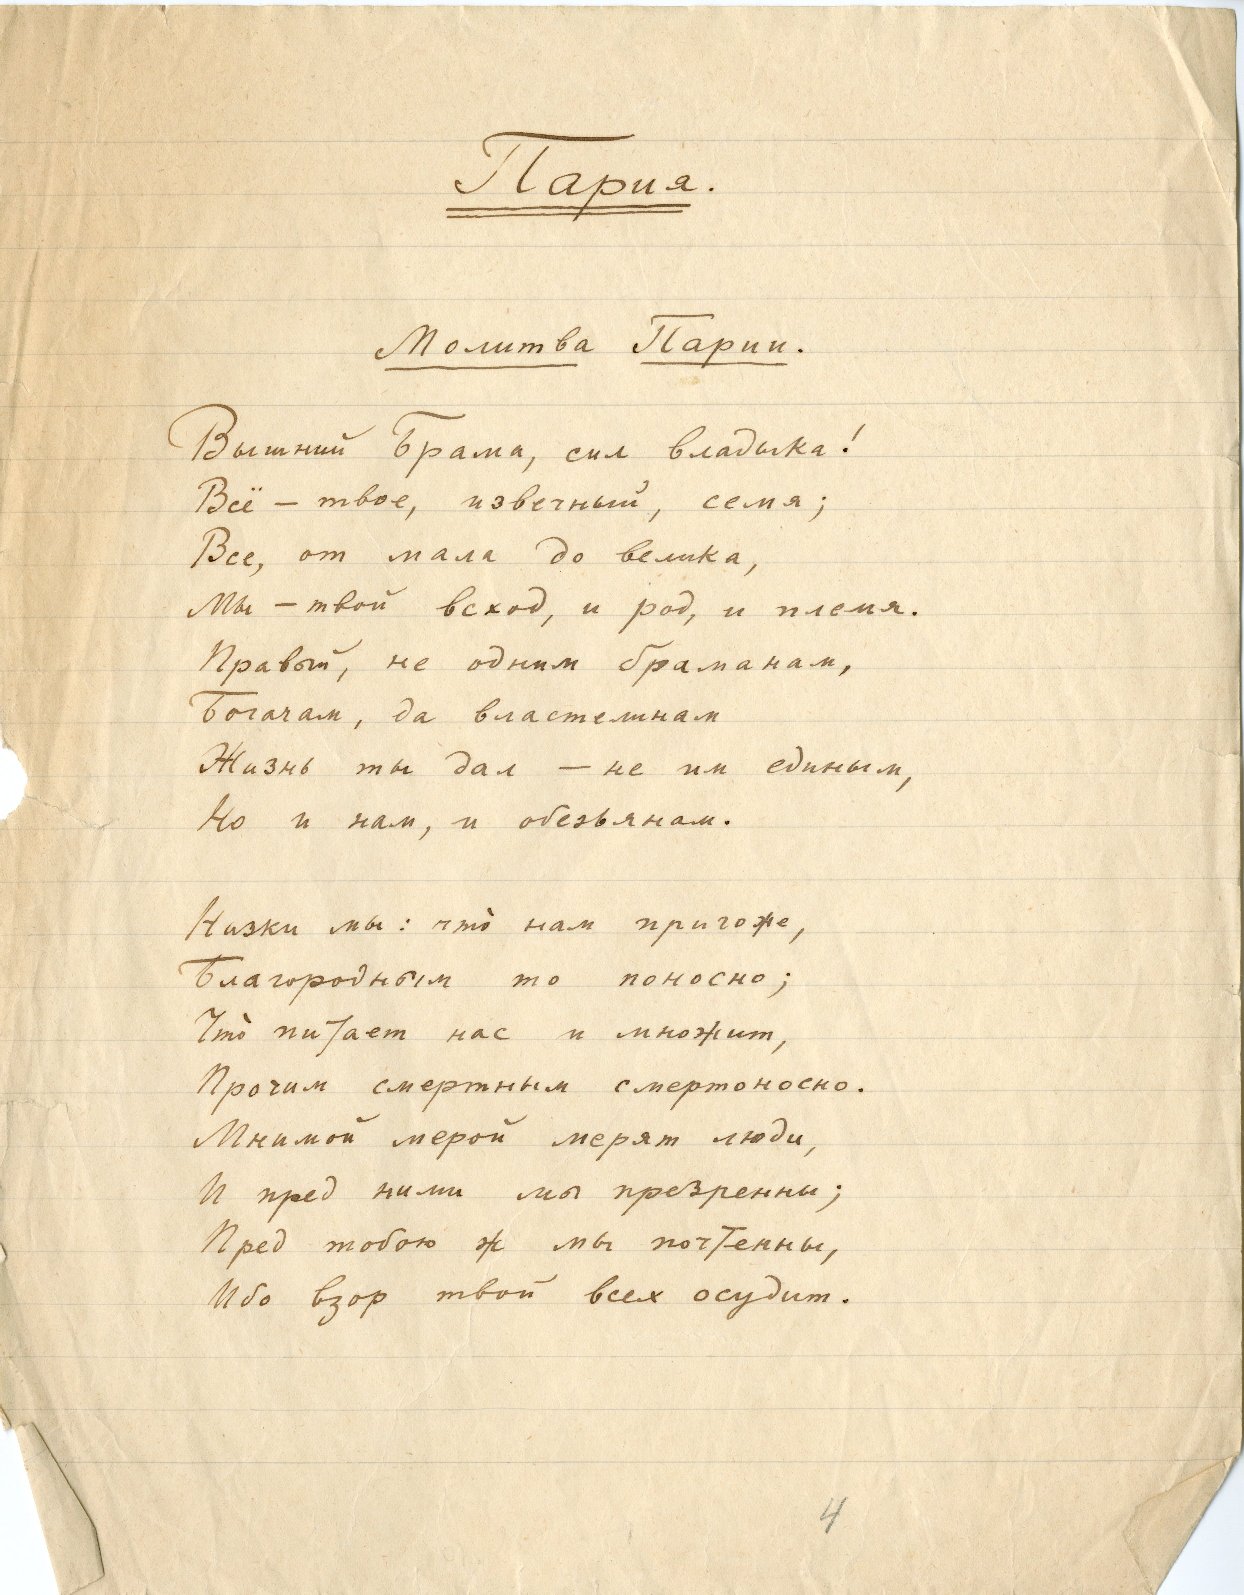 Пария.
Молитва Парии.
Вышний Брама, сил владыка!
Всё – твое, извечный, семя;
Все, от мала до велика,
Мы – твой всход, и род, и племя.
Правый, не одним браманам,
Богачам, да властелинам
Жизнь ты дал – не им единым,
Но и нам, и обезьянам.
Низки мы: что̀ нам пригоже,
Благородным то поносно;
Что̀ питает нас и множит,
Прочим смертным смертоносно.
Мнимой мерой мерят люди,
И пред ними мы презренны;
Пред тобою ж мы почтенны,
Ибо взор твой всех осудит.
4